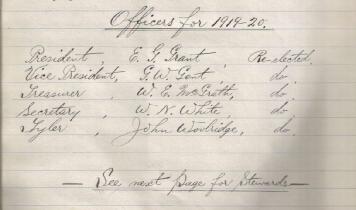 Officers for 1919-20.
President, E. G. Grant, Re-elected.
Vice President, G. W. Gent, do.
Treasurer, W. E. McGrath, do
Secretary, W. N. White, do
Tyler, John Woolridge, do.
— See next page for Stewards —